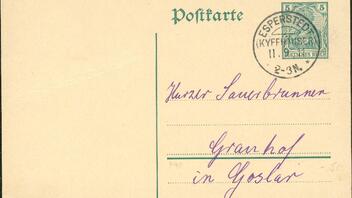 5 5
Postkarte
ESPERSTEDT
(KYFFHÄUSER)
11.9
2-3N.
Harzer Sauerbrunnen
Grauhof
in Goslar